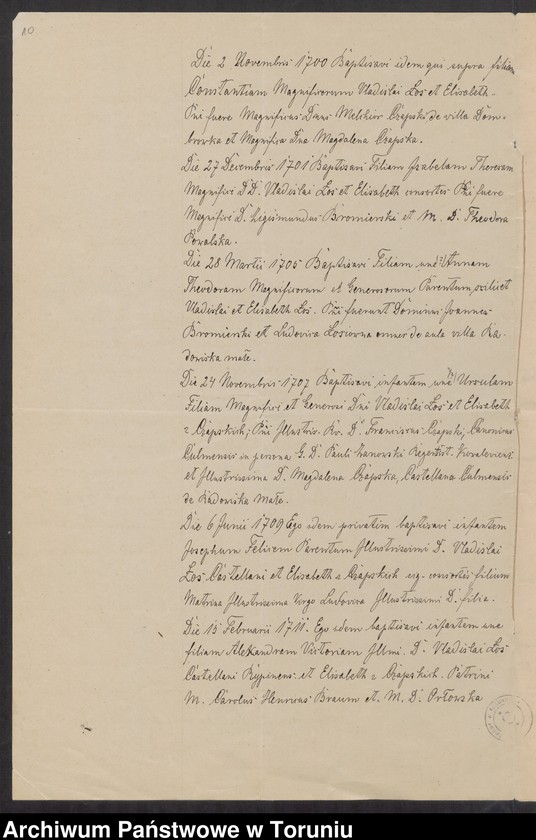 10
Die 2 Novembris 1700 Baptisavi idem qui supra filiam
Constantiam Magnificorum Vladislai Łoś et Elisabeth.
Pni fuere Magnificus Dnus Melchior Czapski de villa Dom-
browka et Magnifica Dna Magdalena Czapska.
Die 27 Decembris 1701 Baptisavi Filiam Isabelam Theresam
Magnifici D.D. Vladislai Łoś et Elisabeth consortes Pni fuere
Magnifici D. Zigismundus Bromierski et M. D. Theodora
Kowalska.
Die 28 Martii 1705 Baptisavi Filiam Annam
Theodoram Magnificorum et Generosorum Parentum scilicet
Vladislai et Elisabeth Łoś. Pni fuerunt Dominus Joannes
Bromierski et Ludovica Łosiowna omnes de aula villa Ra-
dowiska małe.
Die 24 Novembris 1707 Baptisavi infantem Ursulam
Filiam Magnifici et Generosi Dni Vladislai Łoś et Elisabeth
z Czapskich; Pni Illustris. Rv. D. Franciscus Czapski, Canonicus
Culmensis in persona G. D. Pauli
et Illustrissima D. Magdalena Czapska, Castellana Culmensis
de Radowiska Małe.
Die 6 Junii 1709 Ego idem privatim baptisavi infantem
Josephum Felicem Parentum Illustrissimi D. Vladislai
Łoś Castellani et Elisabeth z Czapskich consortis filium
Matrina Illustrissima Virgo Ludovica Illustrissimi D. filia.
Die 15 Februarii 1711. Ego idem baptisavi infantem une
filiam Alexandram Victoriam Illmi. D. Vladislai Łoś
Castellani Rypinens. et Elisabeth z Czapskich. Patrini
M. Carolus Henricus Braum et. M. D. Orłowska
Archiwum Państwowe w Toruniu